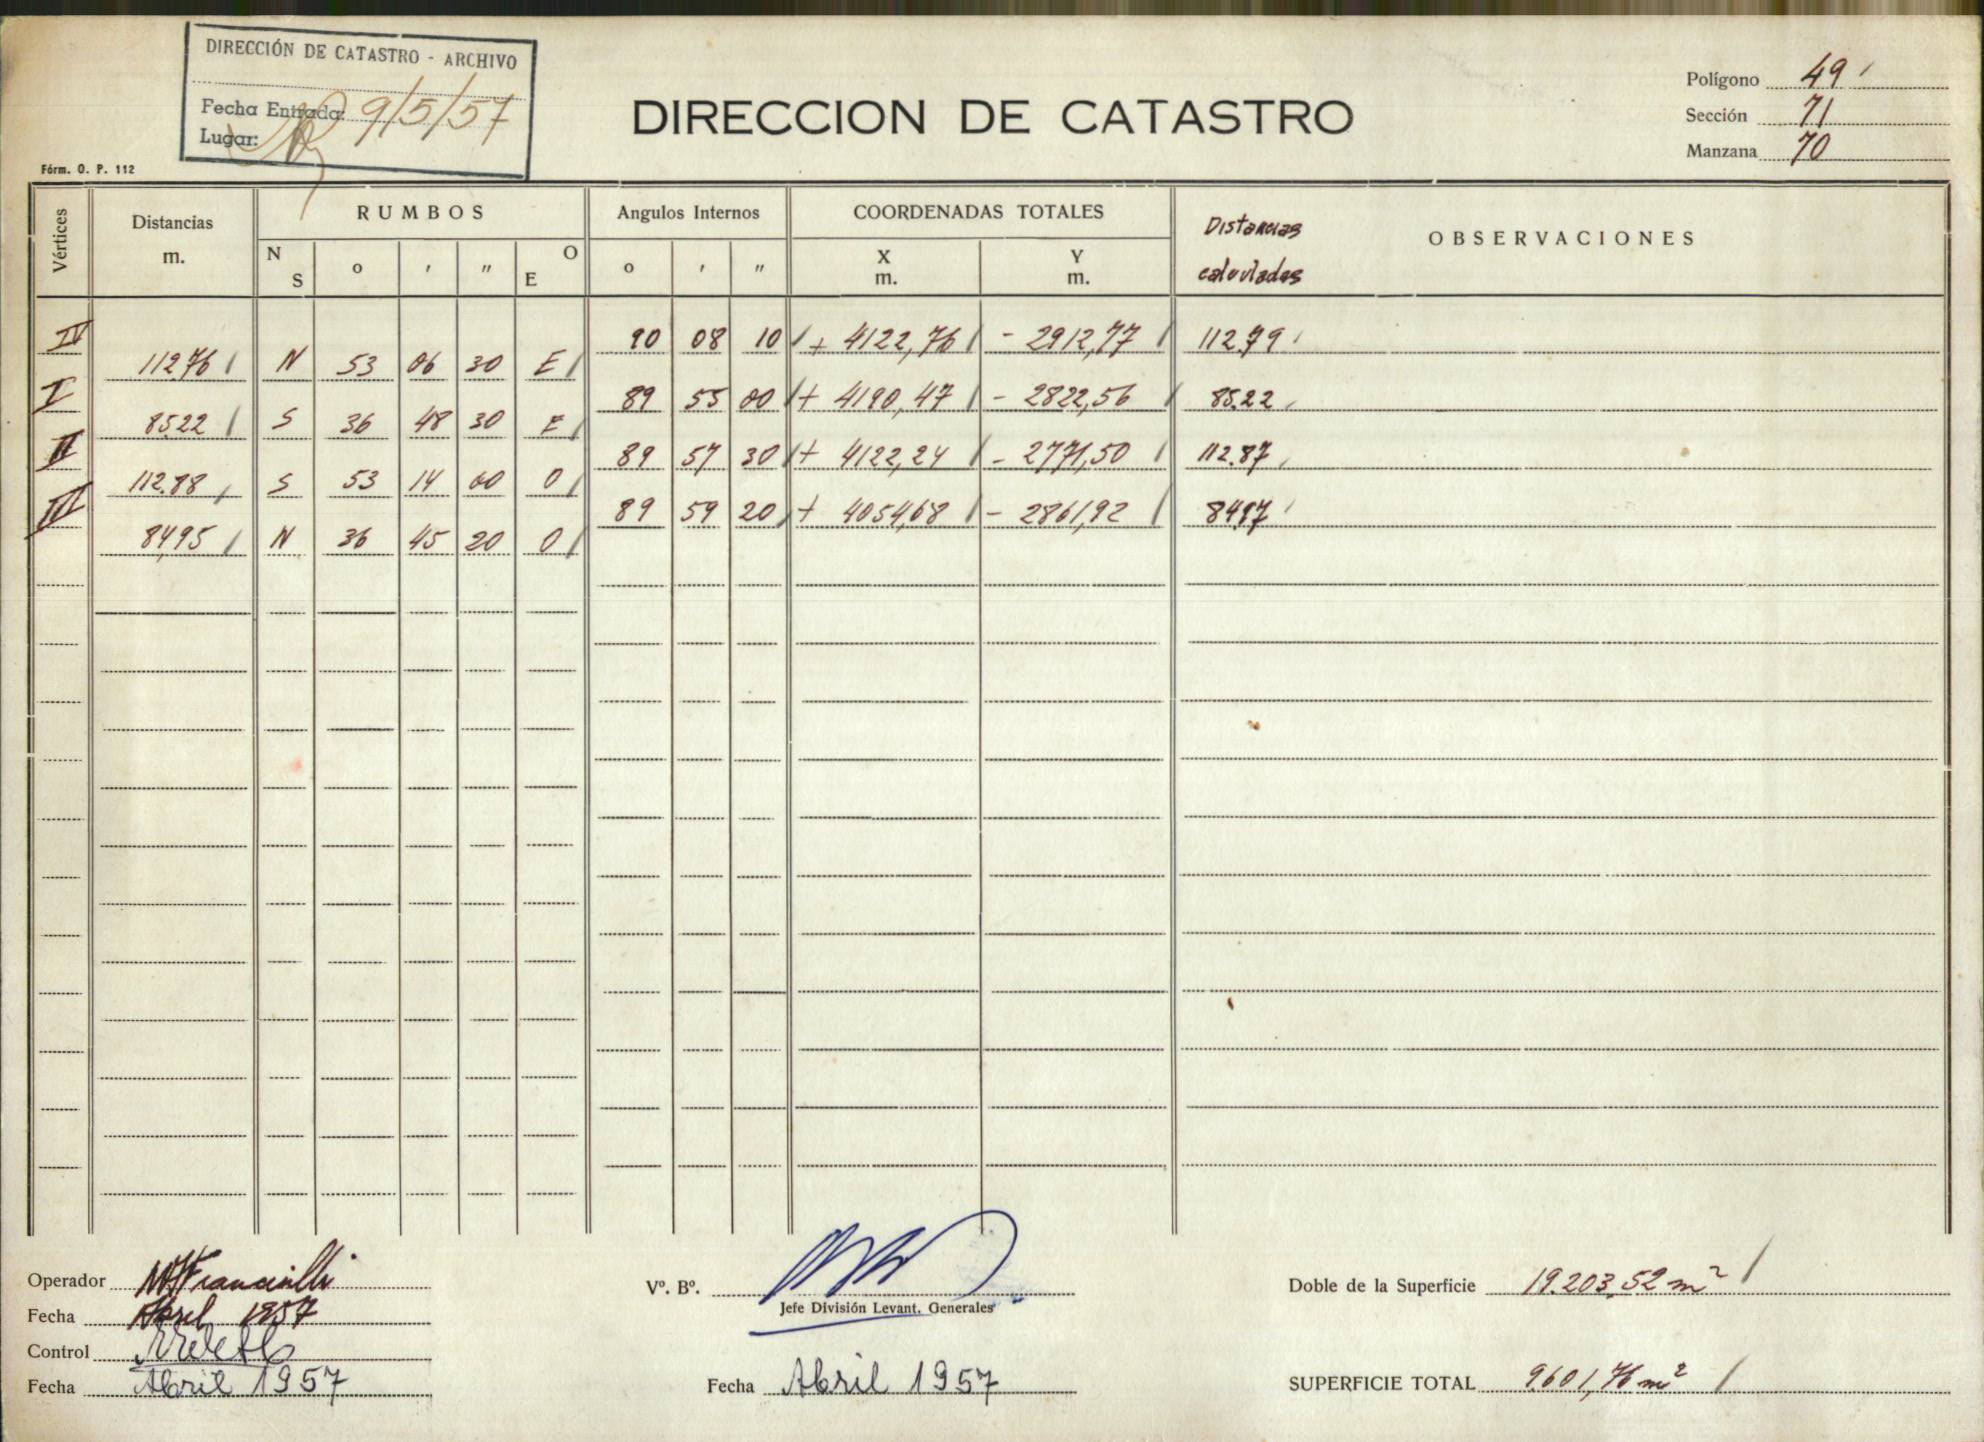 DIRECCIÓN DE CATASTRO - ARCHIVO
Fecha Entrada: 9/5/57
Lugar:
Fórm. O. P. 112
DIRECCION DE CATASTRO
Polígono 49
Sección 71
Manzana 70
Vértices Distancias m. RUMBOS N S o ' " E O Angulos Internos o ' " COORDENADAS TOTALES X m. Y m. Distancias calculadas OBSERVACIONES
IV 90 08 10 + 4122,76 - 2912,77 112.79
112,76 N 53 06 30 E
I 89 55 00 + 4190,47 - 2822,56 85.22
85,22 S 36 48 30 E
II 89 57 30 + 4122,24 - 2771,50 112.87
112.88 S 53 14 00 O
III 89 59 20 + 4054,68 - 2861,92 84,97
84,95 N 36 45 20 O
Operador
Fecha Abril 1957
Control
Fecha Abril 1957
Vº. Bº.
Jefe División Levant. Generales
Fecha Abril 1957
Doble de la Superficie 19.203,52 m²
SUPERFICIE TOTAL 9601,76 m²